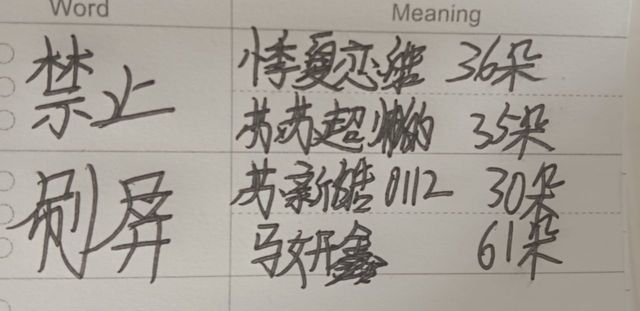 Word Meaning
禁止
刷屏
悸夏恋雒 36朵
苏苏超懒的 35朵
苏新皓0112 30朵
马妍鑫 61朵